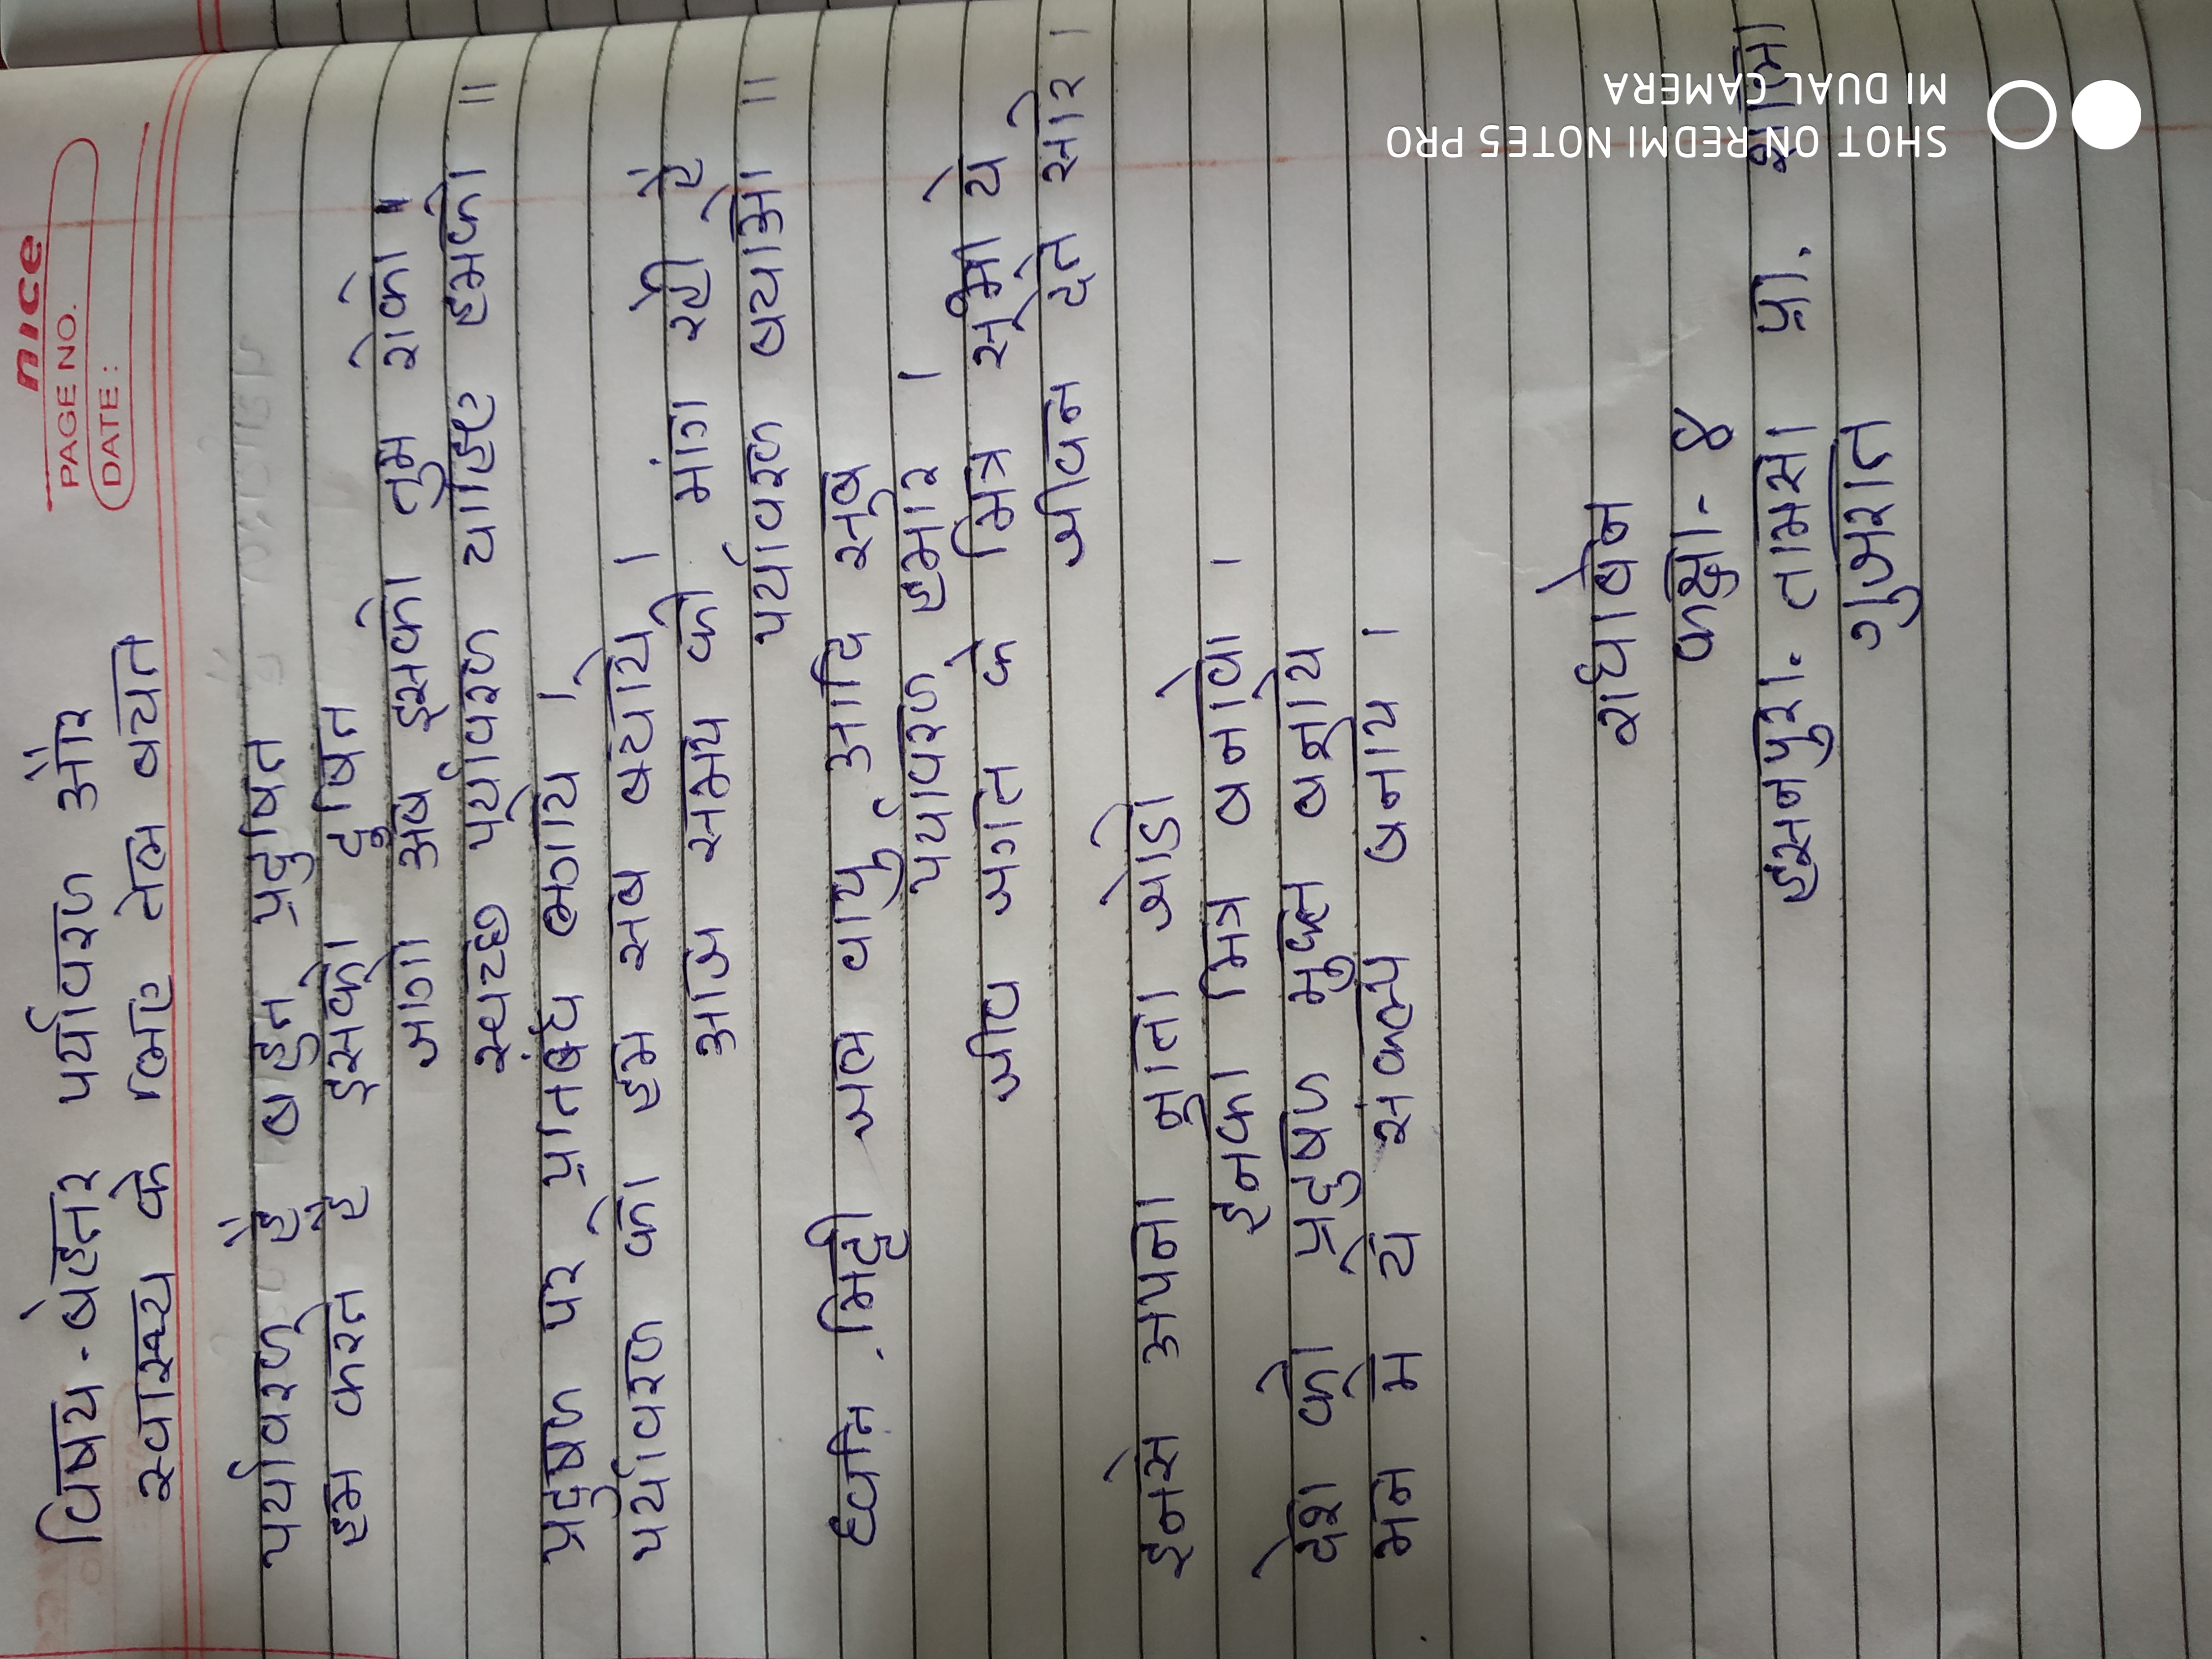 nice
PAGE NO.
DATE :
विषय - बेहतर पर्यावरण और
स्वास्थ्य के लिए तेल बचत
पर्यावरण है बहुत प्रदुषित
हम करते है इसको दुषित
जागो अब इसको तुम रोको।
स्वच्छ पर्यावरण चाहिए हमको ॥
प्रदुषण पर प्रतिबंध लगाये ।
पर्यावरण को हम सब बचाये ।
आज समय की मांग रही है
पर्यावरण बचाओ ॥
ध्वनि, मिट्टी जल वायु आदि सब
पर्यावरण हमारे ।
जीव जगत के मित्र सभी ये
जीवन देते सारे ।
इनसे अपना नाता जोडो
इनको मित्र बनावो ।
देश को प्रदुषण मुक्त बनाये
मन में ये संकल्प बनाये ।
राधाबेन
कक्षा - ४
हसनपुरा. तामसा प्रा. शाला
गुजरात
SHOT ON REDMI NOTE5 PRO
MI DUAL CAMERA